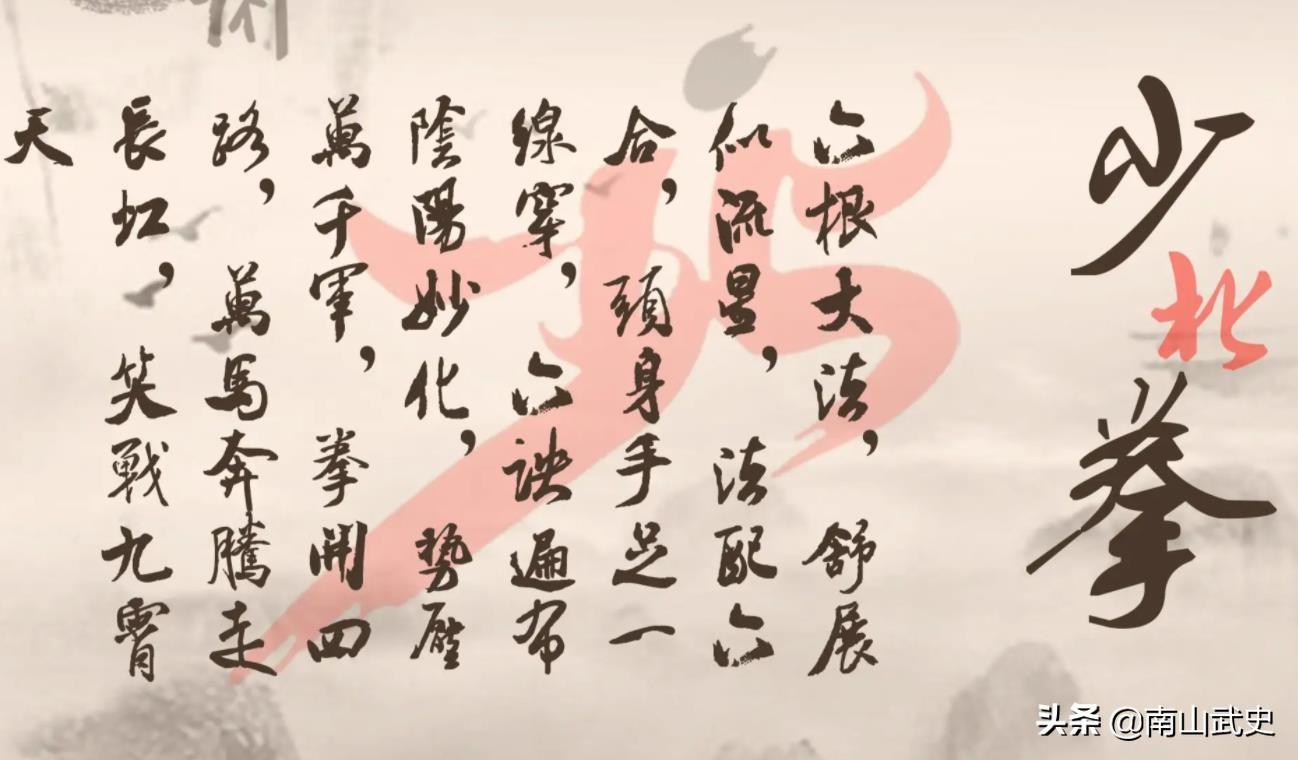 少北拳
六根大法，舒展
似流星，法配六
合，頭身手足一
線穿，六訣遍布
陰陽妙化，勢壓
萬千軍，拳開四
路，萬馬奔騰走
長虹，笑戰九霄
天
头条 @南山武史